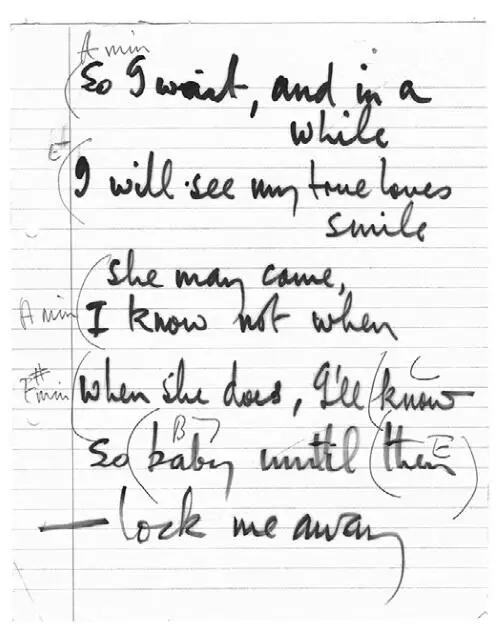 A min
So I wait, and in a
while
E+
I will see my true loves
smile
she may come,
A min I know not when
F#min when she does, I'll know C
B7 E
So baby until then
— lock me away